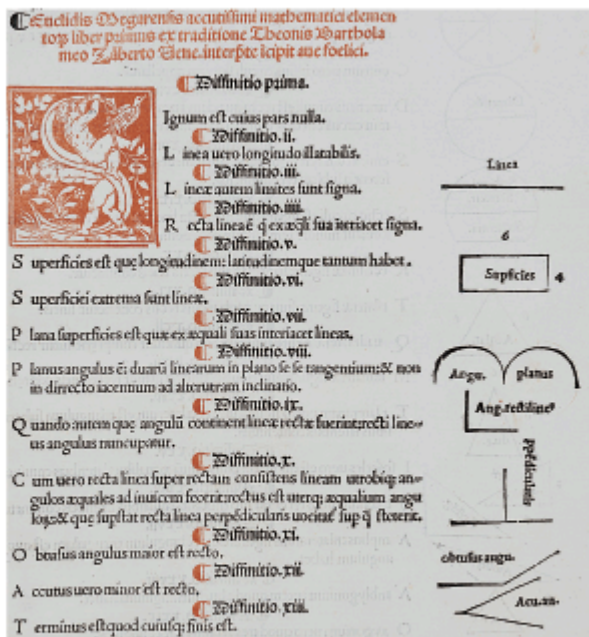 Euclidis Megarensis accutissimi mathematici elemen
toꝝ liber primus ex traditione Theonis Bartho la
meo Zāberto Vene. interp̄te īcipit aue foelici.
Diffinitio prima.
Ignum est cuius pars nulla.
Diffinitio.ii.
L inea uero longitudo illatabilis.
Diffinitio.iii.
L ineæ autem limites sunt signa.
Diffinitio.iiii.
R ecta linea ē q̄ ex æq̄li sua īteriacet signa.
Diffinitio.v.
S uperficies est quę longitudinem: latitudinemque tantum habet.
Diffinitio.vi.
S uperficiei extrema sunt lineæ.
Diffinitio.vii.
P lana superficies est quæ ex æquali suas interiacet lineas.
Diffinitio.viii.
P lanus angulus ē: duarū linearum in plano se se tangentium: & non
in dirrecto iacentium ad alterutram inclinatio.
Diffinitio.ix.
Q uando autem quę angulū continent lineæ rectæ fuerint: recti line-
us angulus nuncupatur.
Diffinitio.x.
C um uero recta linea super rectam consistens lineam utrobiq; an-
gulos æquales ad inuicem fecerit: rectus est uterq; æqualium angu
loꝝ: & quę supstat recta linea perpēdicularis uocitat̄ sup q̄ steterit.
Diffinitio.xi.
O btusus angulus maior est recto.
Diffinitio.xii.
A ccutus uero minor est recto.
Diffinitio.xiii.
T erminus est quod cuiusq; finis est.
Linea
6
Supficies 4
Angu. planus
Ang.rectiline⁹
ppēdicularis
obtusus angu.
Acu.an.